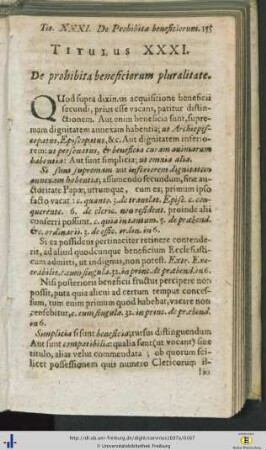 Tit. XXXI. De Prohibita beneficiorum. 195
TITULUS XXXI.
De prohibita beneficiorum pluralitate.
QUod supra diximus acquisitione beneficii
secundi, prius esse vacans, patitur distin-
ctionem. Aut enim beneficia sunt, supre-
mam dignitatem annexam habentia; ut Archiepis-
copatus, Episcopatus, &c. Aut dignitatem inferio-
rem: ut personatus, & beneficia curam animarum
habentia: Aut sunt simplicia; ut omnia alia.
Si sint supremam aut inferiorem dignitatem
annexam habentia, assumendo secundum, sine au-
ctoritate Papæ, utrumque, cum ea; primum ipso
facto vacat: c. quanto. 3. de translat. Episc. c. con-
querente. 6. de cleric. non resident. proinde alii
conferri possunt. c. quia in tantum. 5. de præbend.
& c. ordinarii. 3. de offic. ordin. in 6.
Si ea possidens pertinaciter retinere contende-
rit, ad aliud quodcunque beneficium Ecclesiasti-
cum admitti, ut indignus, non potest. Extr. Exe-
crabilis. c. cum singula. 32. in princ. de præbend. in 6.
Nisi posterioris beneficii fructus percipere non
possit, puta quia alteri ad certum tempus conces-
sum, tum enim primum quod habebat, vacare non
censebitur, c. cum singula. 32. in princ. de præbend.
in 6.
Simplicia si sunt beneficia, rursus distinguendum
Aut sunt compatibilia: qualia sunt (ut vocant) sine
titulo, alias velut commendata; ob quorum sci-
licet possessionem quis numero Clericorum il-
lius
http://dl.ub.uni-freiburg.de/diglit/corvinus1697a/0387
© Universitätsbibliothek Freiburg